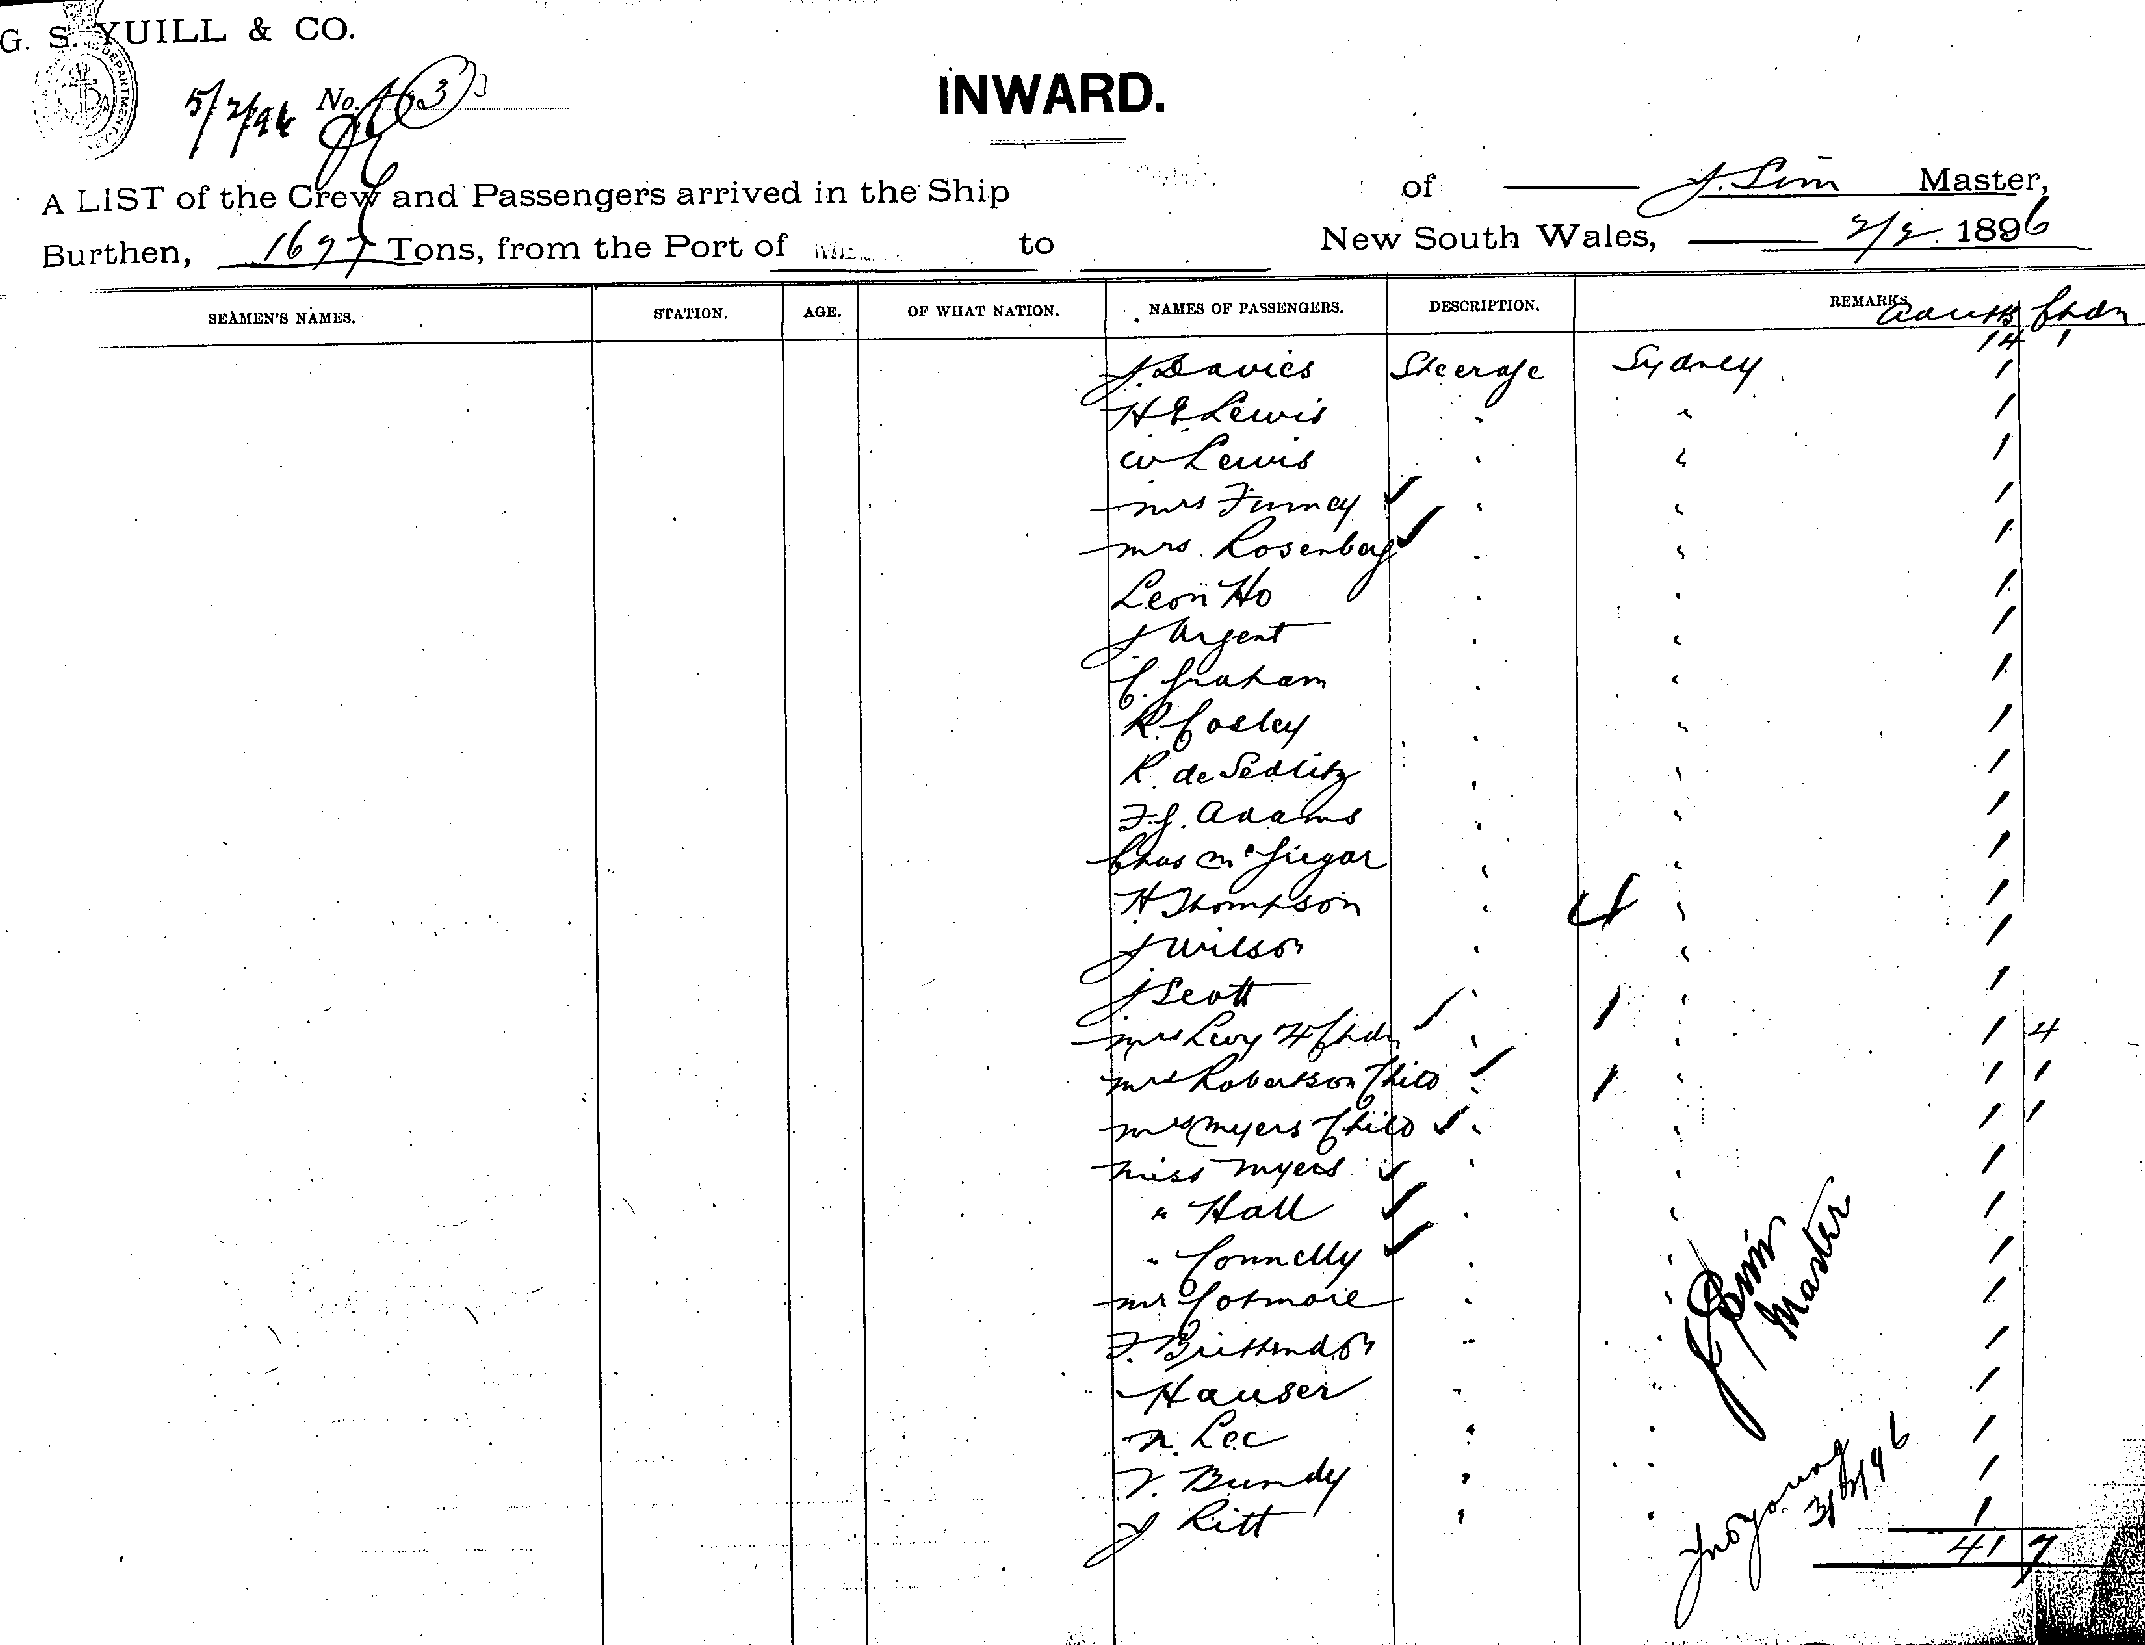 G. S. YUILL & CO.
5/2/96 No.
INWARD.
A LIST of the Crew and Passengers arrived in the Ship of J. Sim Master,
Burthen, 1697 Tons, from the Port of to New South Wales, 2/2 1896
SEAMEN'S NAMES. STATION. AGE. OF WHAT NATION. NAMES OF PASSENGERS. DESCRIPTION. REMARKS Adults Chdn
14 1
J. Davies Steerage Sydney 1
H E Lewis " " 1
W Lewis " " 1
Mrs Finney ✓ " " 1
Mrs. Rosenberg ✓ " " 1
Leon Ho " " 1
J Argent " " 1
C. Graham " " 1
R. Cosley " " 1
R. de Sedlitz " " 1
F. J. Adams " " 1
Chas McGregor " " 1
H Thompson " " 1
J Wilson " " 1
J Scott " " 1
Mrs Levy 4 Chdn ✓ " 1 " 1 4
Mrs Robertson Child ✓ " 1 " 1 1
Mrs Myers Child ✓ " " 1 1
Miss Myers ✓ " " 1
" Hall ✓ " " 1
" Connelly ✓ " " 1
Mr Cotmore " " 1
F. Brittenden " " 1
Hauser " " 1
N. Lee " " 1
V. Bundy " " 1
J Ritt " " 1
41 7
J Sim
Master
Jno Young
3/2/96